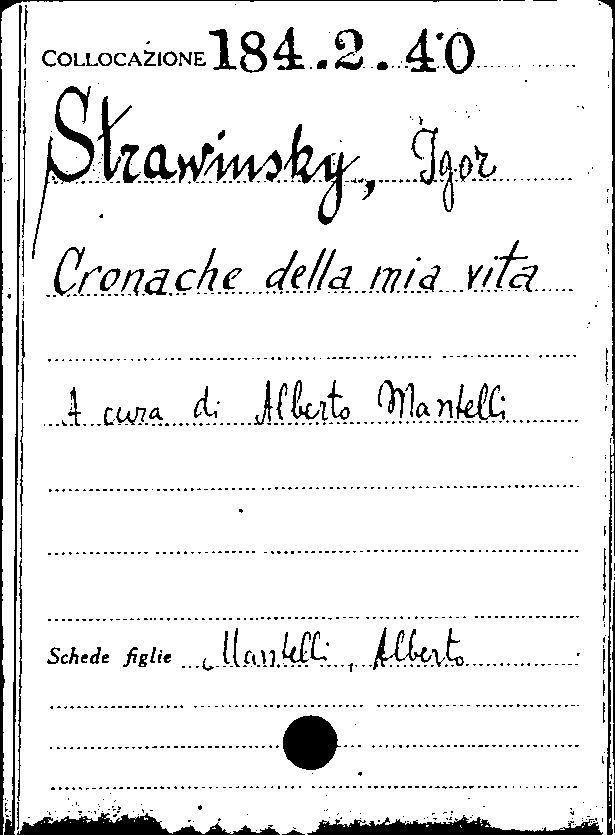 COLLOCAZIONE 184.2.40
Strawinsky, Igor
Cronache della mia vita
A cura di Alberto Mantelli
Schede figlie Mantelli, Alberto